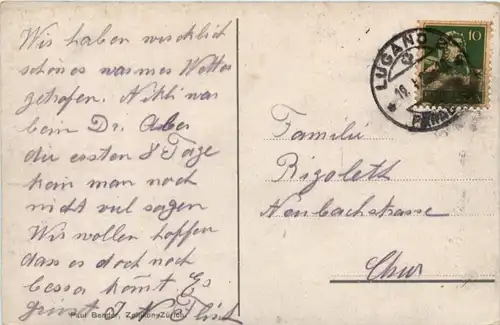 Wir haben wircklich
schönes warmes Wetter
getrofen. Nikli war
beim Dr. Aber
die ersten 8 Tage
kan man noch
nicht viel sagen
Wir wollen hoffen
dass es doch noch
besser kömt Es
LUGANO
10
Familie
Rigoleth
Neubachstrasse
Chur
Paul Bender, Zollikon-Zürich